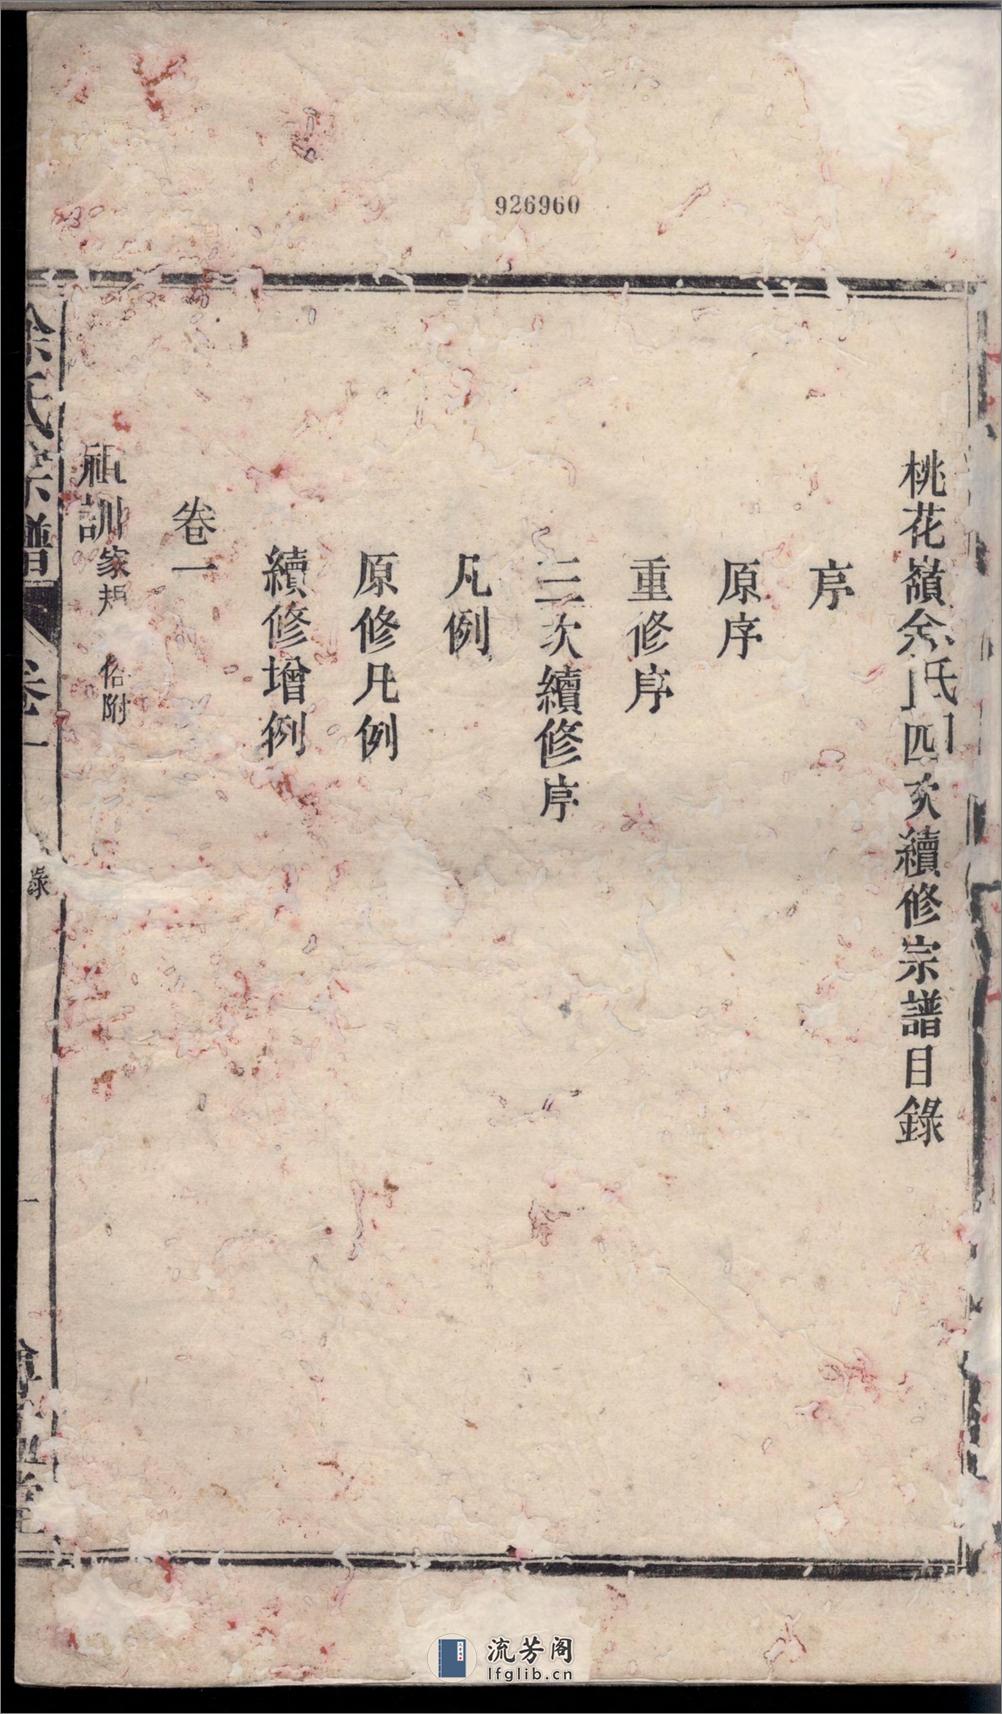 926960
桃花嶺余氏四次續修宗譜目錄
序
原序
重修序
三次續修序
凡例
原修凡例
續修增例
卷一
祖訓家規 俗附
余氏宗譜 卷一 錄 一 堂
流芳阁
lfglib.cn